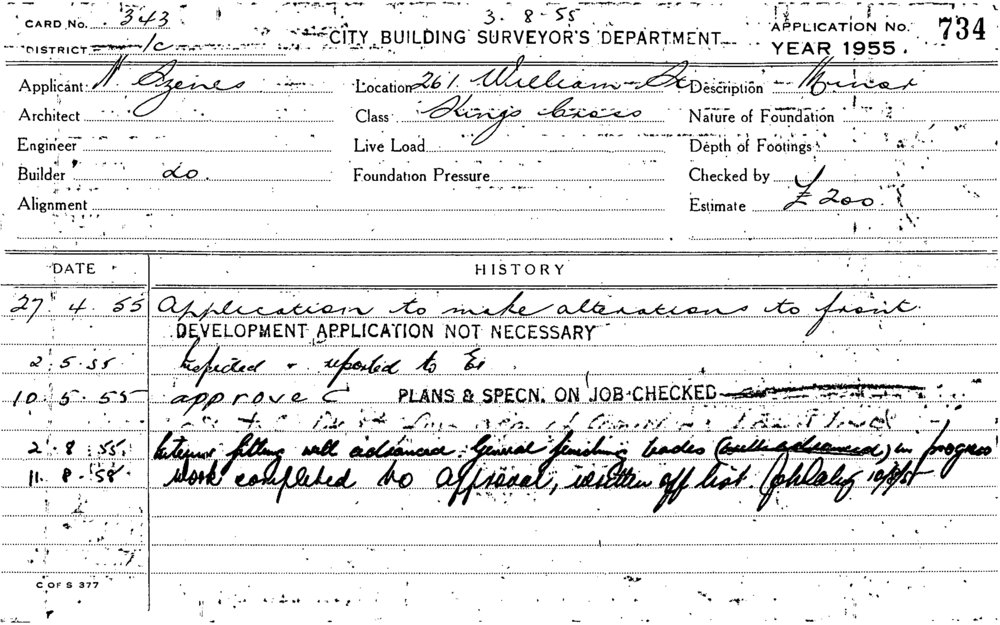 CARD No. 343
3. 8. 55
APPLICATION No. 734
DISTRICT 1c
CITY BUILDING SURVEYOR'S DEPARTMENT
YEAR 1955.
Applicant Location 261 William St Description Minor
Architect Class Kings Cross Nature of Foundation
Engineer Live Load Depth of Footings
Builder do. Foundation Pressure Checked by
Alignment Estimate £200.
DATE HISTORY
27. 4. 55 Application to make alterations to front.
DEVELOPMENT APPLICATION NOT NECESSARY
2. 5. 55 Inspected & reported to
10. 5. 55 approve C PLANS & SPECN. ON JOB CHECKED
2. 8. 55. Interior fitting well advanced. General finishing trades (well advanced) in progress
11. 8. 55. Work completed to approval, written off list.
C OF S 377